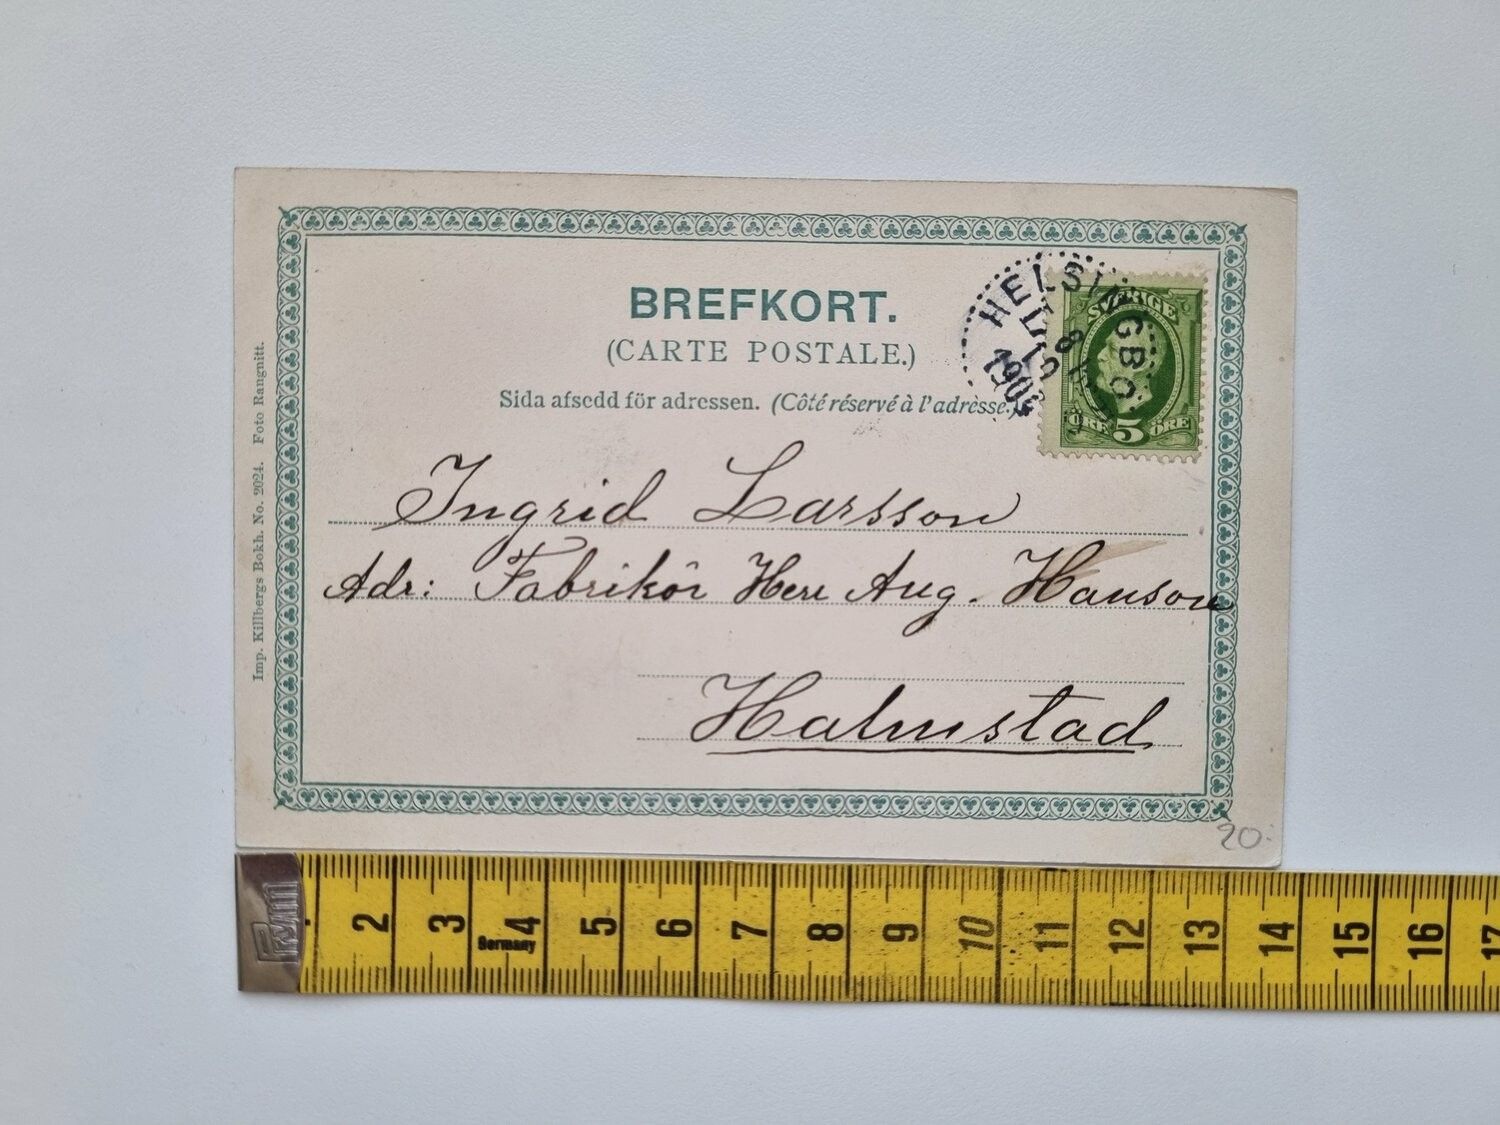 BREFKORT.
(CARTE POSTALE.)
Sida afsedd för adressen. (Côté réservé à l'adresse.)
HELSINGBORG
1903
SVERIGE
ÖRE 5 ÖRE
Ingrid Larsson
Adr: Fabrikör Herr Aug. Hanson
Halmstad
Imp. Killbergs Bokh. No. 2024. Foto Rangnitt.
20:-
Prym
2 3 4 5 6 7 8 9 10 11 12 13 14 15 16 17
Germany